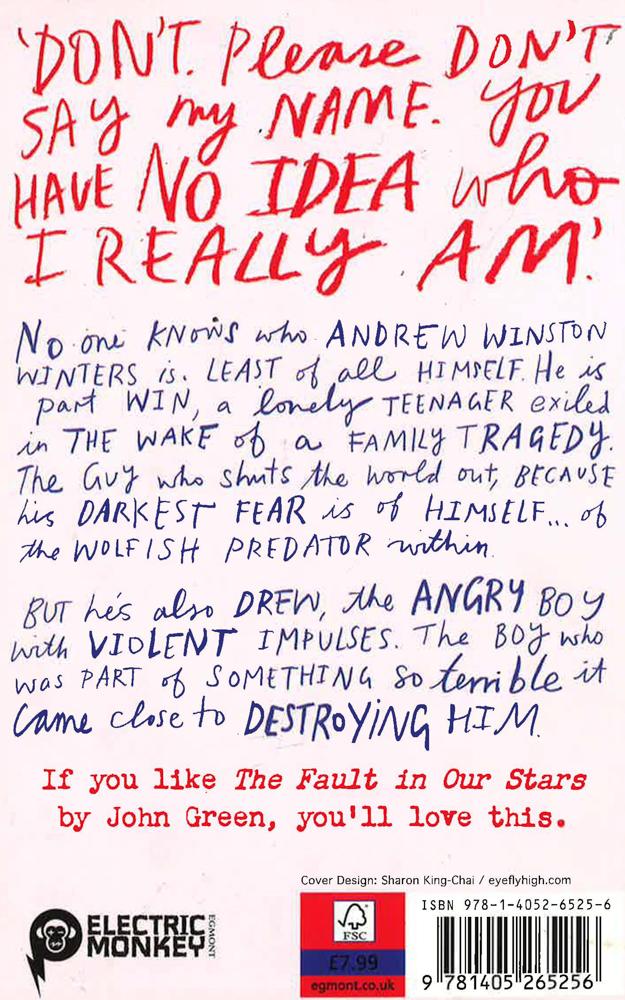 'DON'T. Please DON'T
SAY my NAME. YOU
HAVE NO IDEA who
I REALLY AM.'
No one KNOWS who ANDREW WINSTON
WINTERS is. LEAST of all HIMSELF. He is
part WIN, a lonely TEENAGER exiled
in THE WAKE of a FAMILY TRAGEDY.
The Guy who shuts the world out, BECAUSE
his DARKEST FEAR is of HIMSELF... of
the WOLFISH PREDATOR within.
BUT he's also DREW, the ANGRY BOY
with VIOLENT IMPULSES. The BOY who
was PART of SOMETHING so terrible it
came close to DESTROYING HIM.
If you like The Fault in Our Stars
by John Green, you'll love this.
Cover Design: Sharon King-Chai / eyeflyhigh.com
ELECTRIC
MONKEY
EGMONT
FSC
£7.99
egmont.co.uk
ISBN 978-1-4052-6525-6
9 781405 265256